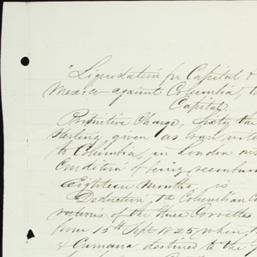 "Liquidation for Capital &
Mexico against Columbia, t
Capital
Primitive Charge, Sixty tho
Sterling given as
to Columbia, in London
Condition of being reembur
Eighteen Months, is
Deduction, the Columbian
rations of the three Corvettes
from 15th Sept 1825, when
& Cumana destined to the